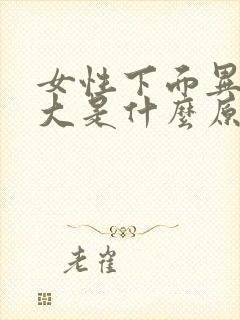 女性下面異
大是什麼原
老雀